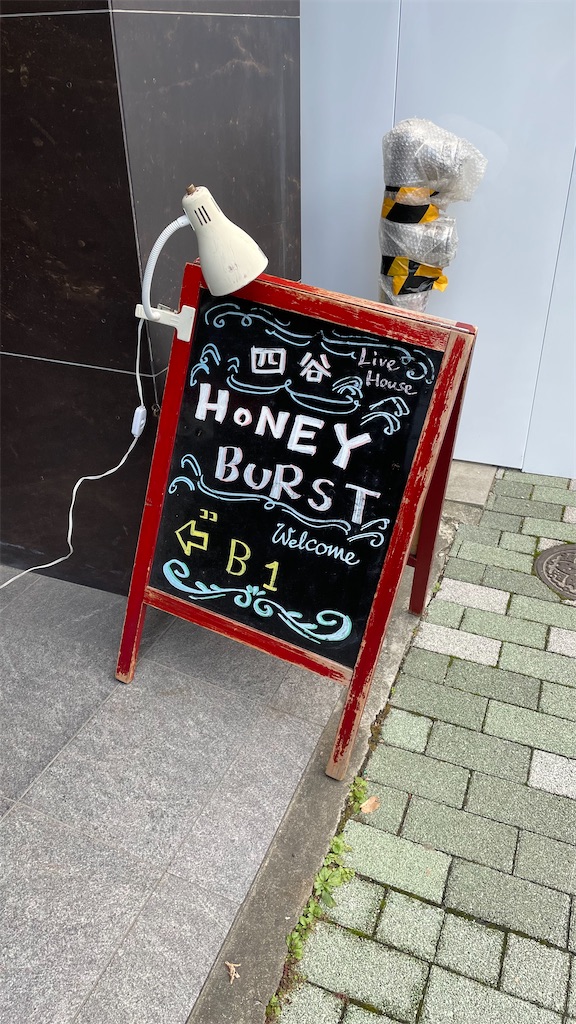 四谷 Live House
HONEY
BURST
Welcome
ココ
B1